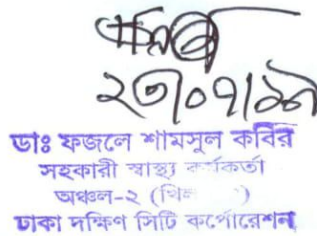 ২৩/০৭/১৯
ডাঃ ফজলে শামসুল কবির
সহকারী স্বাস্থ্য কর্মকর্তা
অঞ্চল-২ (খিল
ঢাকা দক্ষিণ সিটি কর্পোরেশন